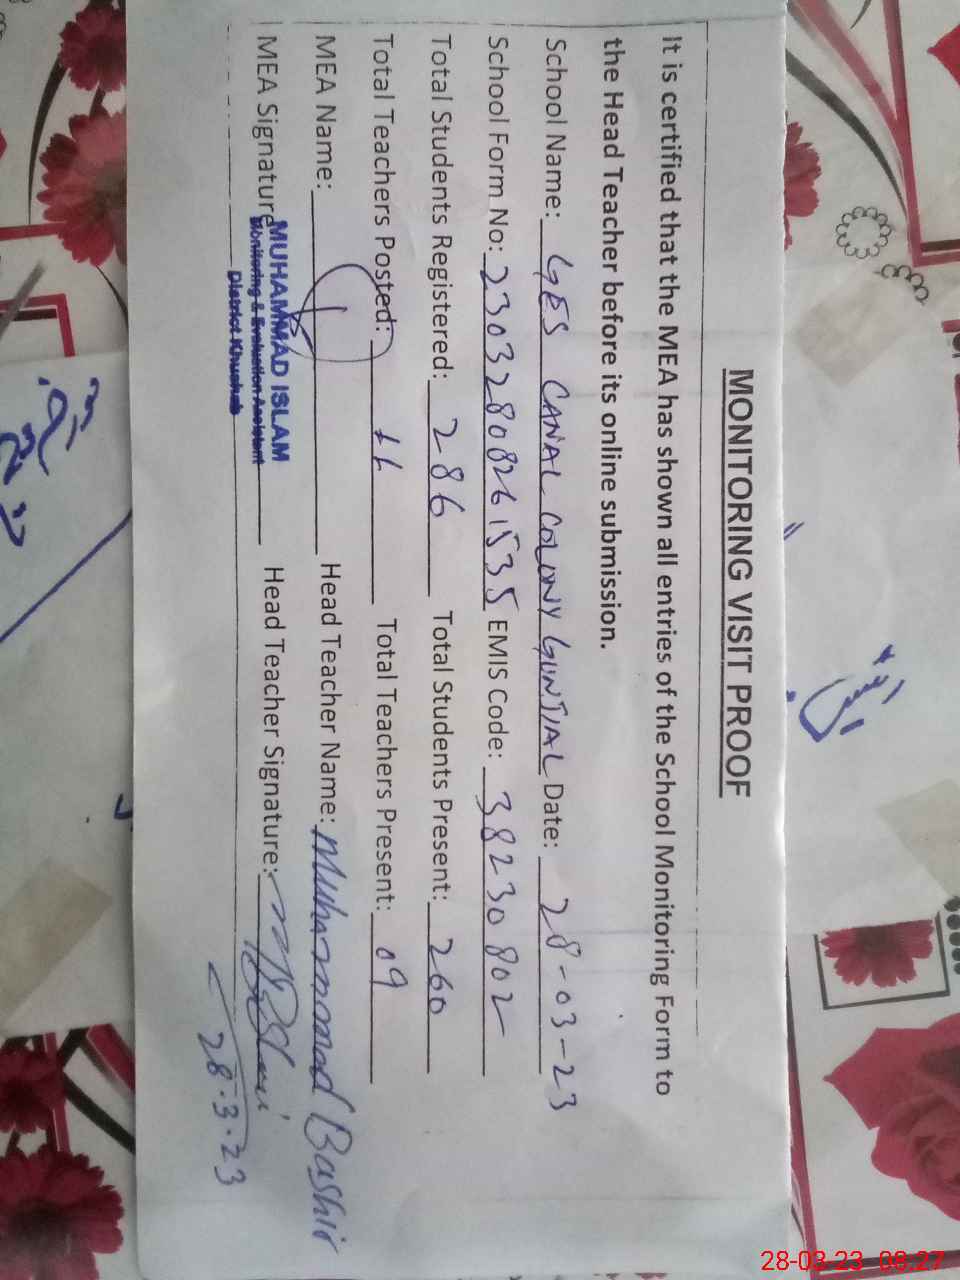 MONITORING VISIT PROOF
It is certified that the MEA has shown all entries of the School Monitoring Form to
the Head Teacher before its online submission.
School Name: GES CANAL COLONY GUNJIAL Date: 28-03-23
School Form No: 23032808261535 EMIS Code: 38230802
Total Students Registered: 286 Total Students Present: 260
Total Teachers Posted: 11 Total Teachers Present: 09
MEA Name: Head Teacher Name: Muhammad Bashir
MEA Signature Head Teacher Signature:
MUHAMMAD ISLAM
Monitoring & Evaluation Assistant
District Khushab
28.3.23
28-03-23 08:27